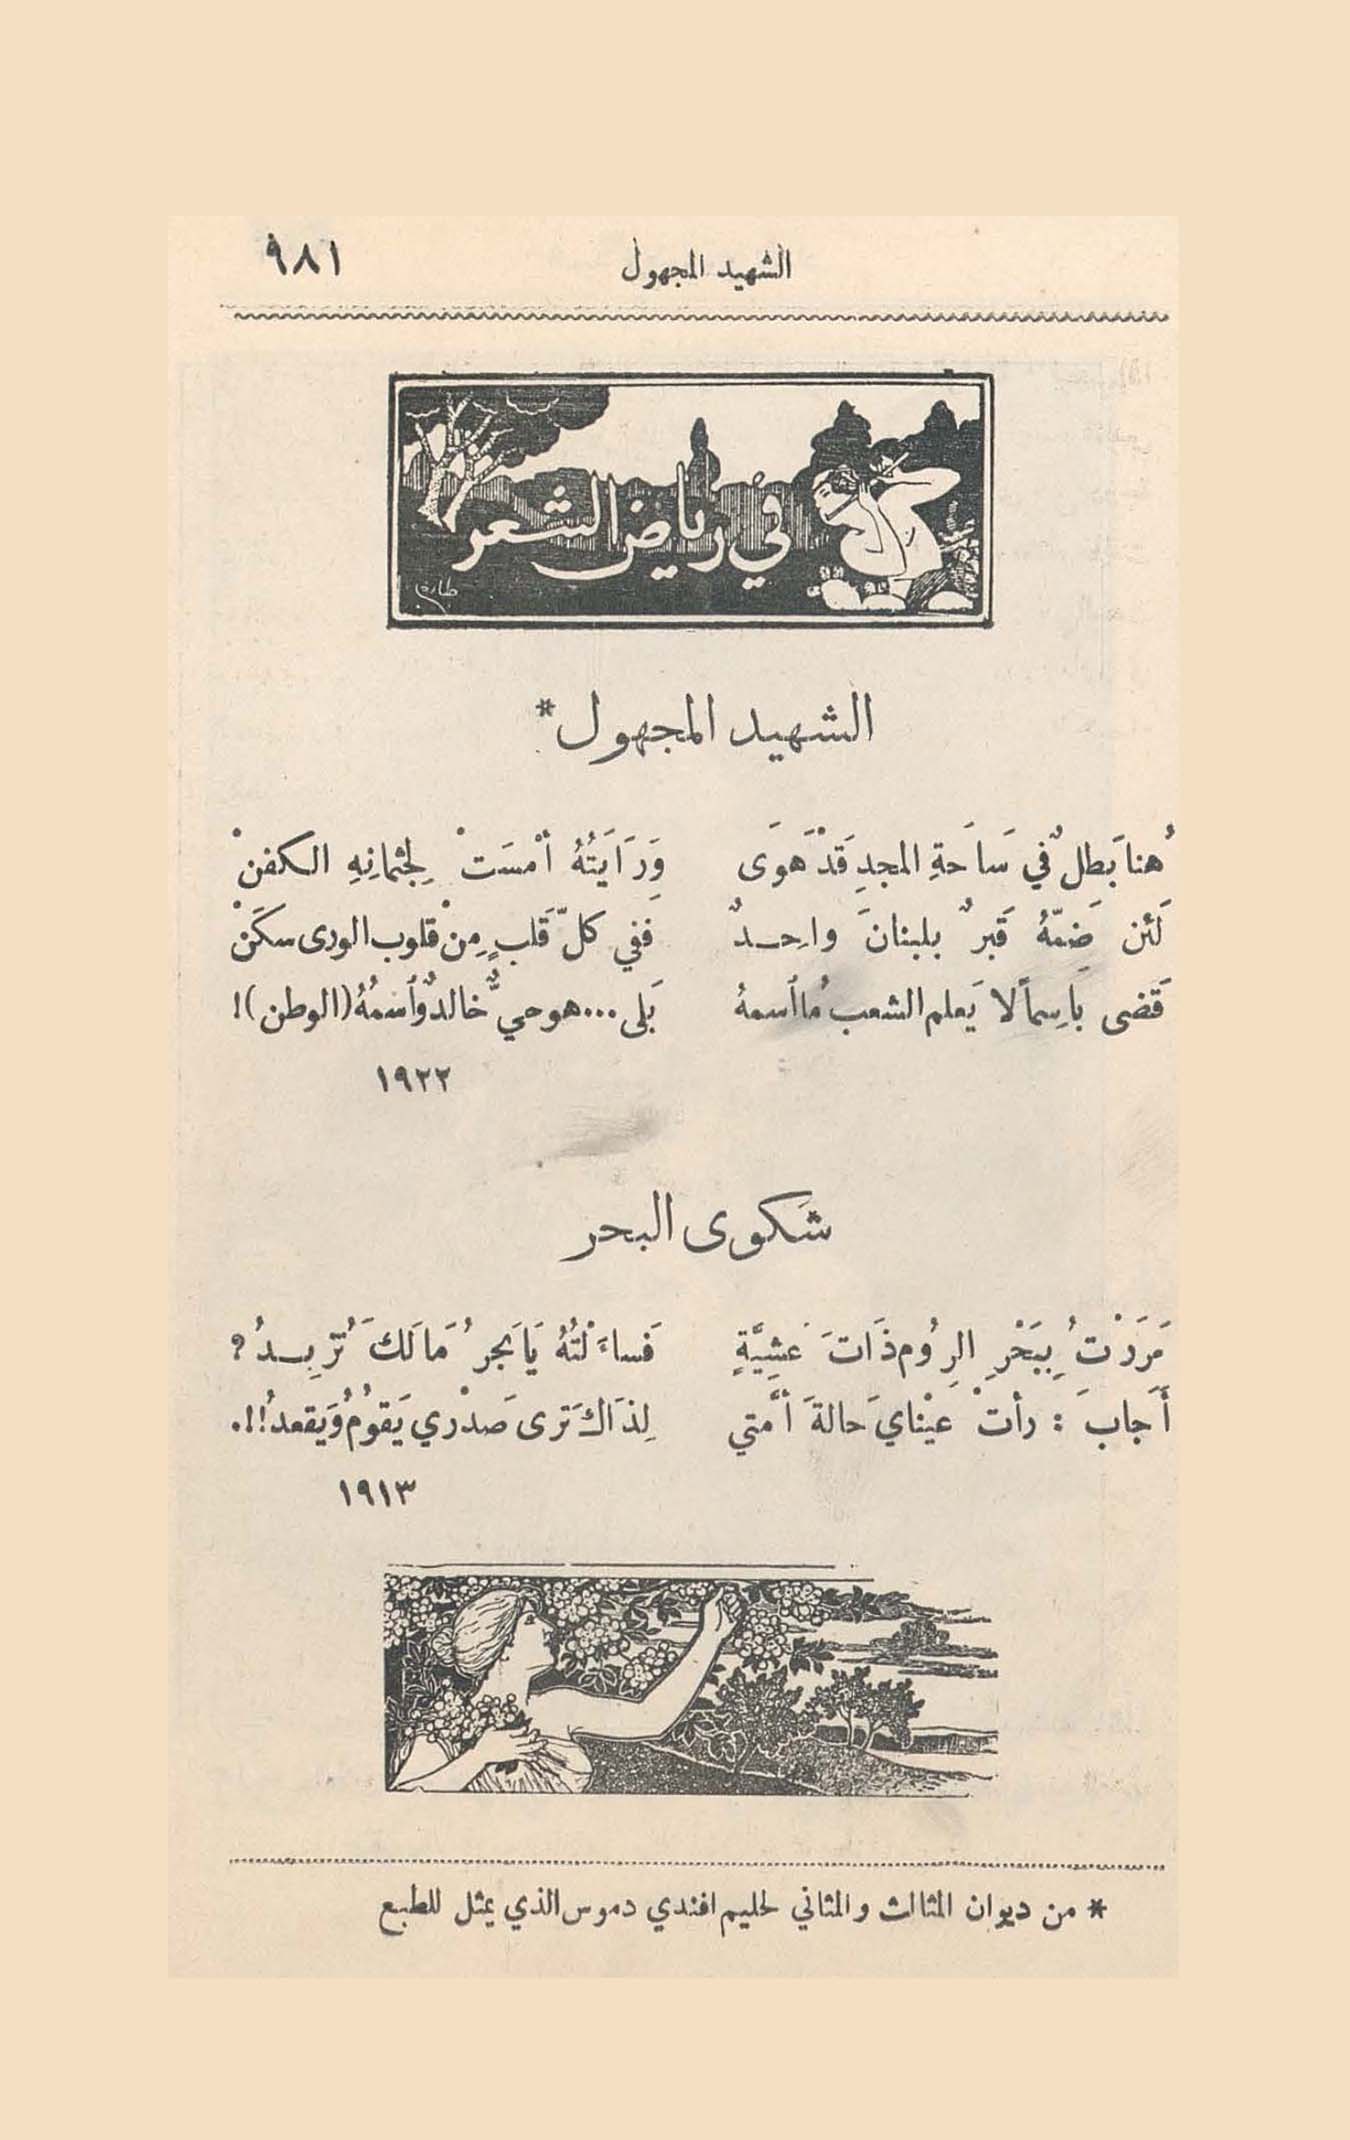 الشهيد المجهول ٩٨١
في رياض الشعر
الشهيد المجهول *
هُنا بَطلٌ في سَاحَةِ المجدِ قَدْ هَوَى وَرَايَتُهُ أمْسَتْ لِجُثمانِهِ الكفنْ
لَئن ضَمّهُ قَبرٌ بلبنانَ واحِدٌ فَفي كلّ قَلبٍ مِنْ قلوب الورى سكَنْ
قَضى بَاسِماً لا يَعلم الشعب مُا ٱسمهُ بَلى ... هو حيٌّ خالدٌ وٱسْمُهُ (الوطن)!
١٩٢٢
شكوى البحر
مَرَرْتُ بِبَحْرِ الرُوم ذَاتَ عَشِيَّةٍ فَساءَلْتُهُ يَا بَحرُ مَا لَكَ تُرِيدُ؟
أَجابَ : رأتْ عَيْنايَ حالةَ أُمَّتي لِذَاكَ تَرى صَدْري يَقوُمُ وَيَقعدُ!!.
١٩١٣
* من ديوان المثالث والمثاني لحليم افندي دموس الذي يمثل للطبع